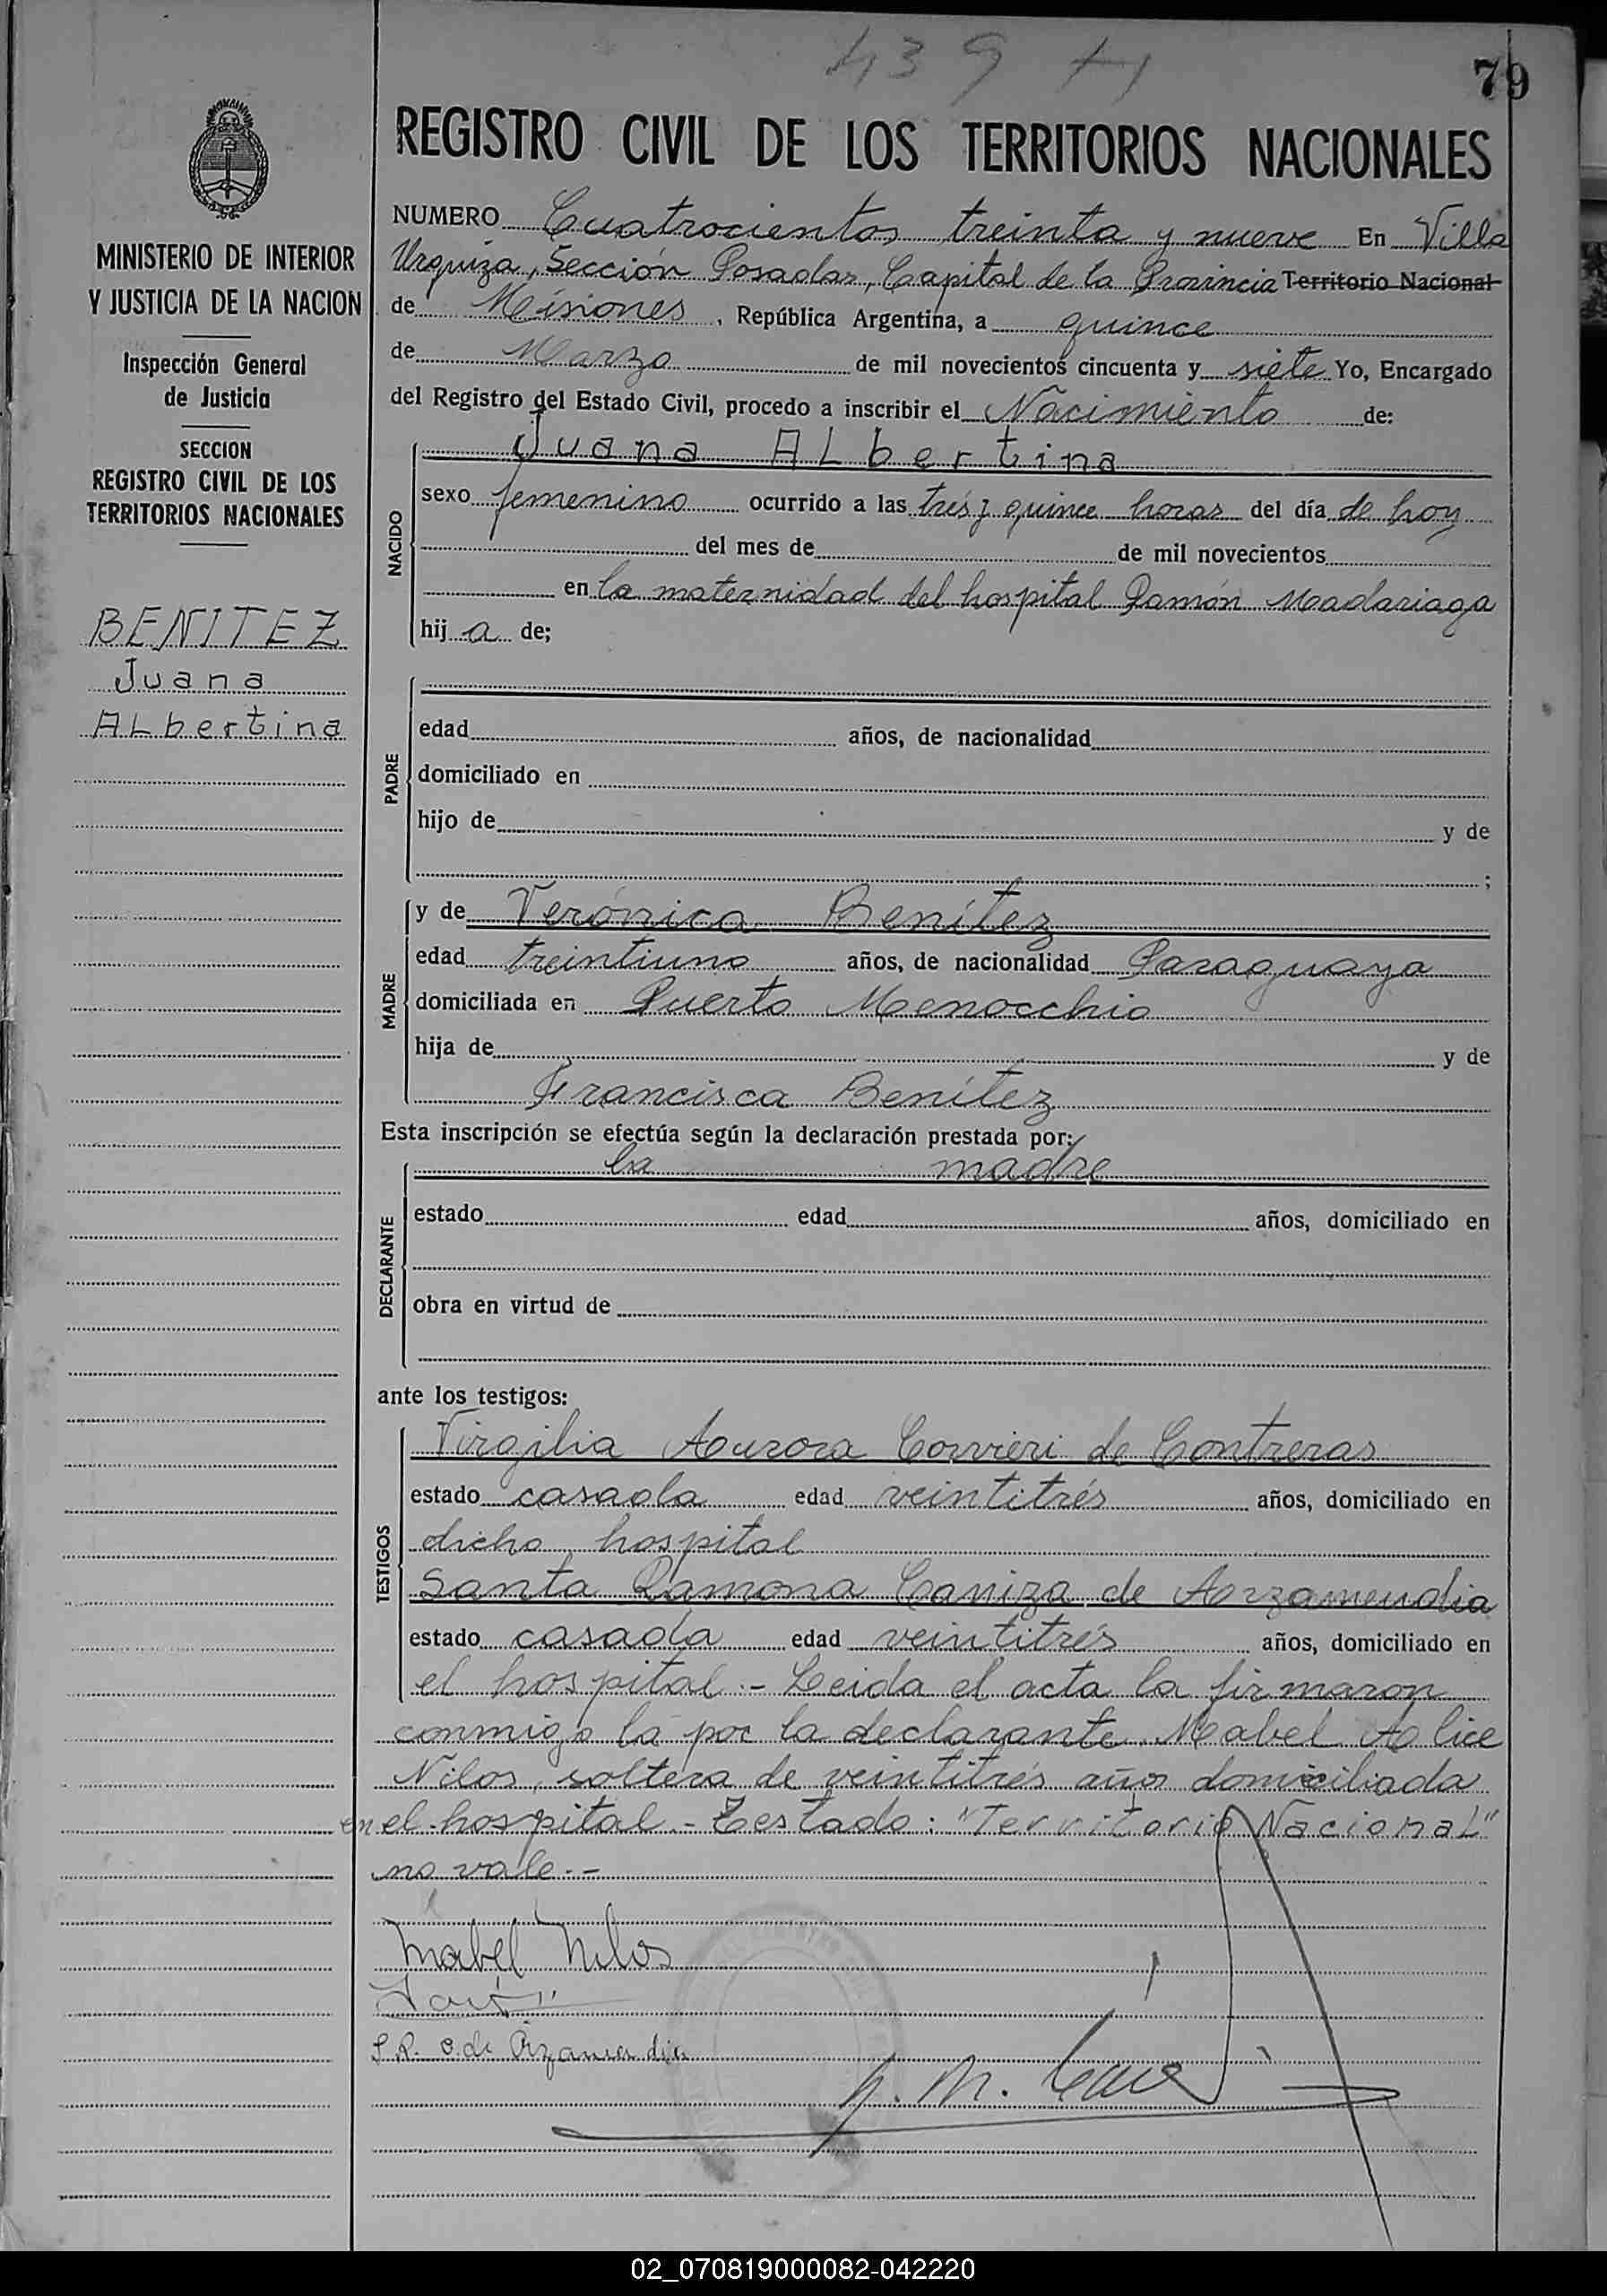 439
79
REGISTRO CIVIL DE LOS TERRITORIOS NACIONALES
MINISTERIO DE INTERIOR
Y JUSTICIA DE LA NACION
Inspección General
de Justicia
SECCION
REGISTRO CIVIL DE LOS
TERRITORIOS NACIONALES
BENITEZ
Juana
ALbertina
NUMERO Cuatrocientos treinta y nueve En Villa
Urquiza, Sección Posadas, Capital de la Provincia Territorio Nacional
de Misiones, República Argentina, a quince
de Marzo de mil novecientos cincuenta y siete Yo, Encargado
del Registro del Estado Civil, procedo a inscribir el Nacimiento de:
Juana ALbertina
NACIDO
sexo femenino ocurrido a las tres y quince horas del día de hoy
del mes de de mil novecientos
en la maternidad del hospital Ramón Madariaga
hij a de;
PADRE
edad años, de nacionalidad
domiciliado en
hijo de y de
;
MADRE
y de Verónica Benítez
edad treintiuno años, de nacionalidad Paraguaya
domiciliada en Puerto Menocchio
hija de y de
Francisca Benítez
Esta inscripción se efectúa según la declaración prestada por:
la madre
DECLARANTE
estado edad años, domiciliado en
obra en virtud de
ante los testigos:
TESTIGOS
Virgilia Aurora Corvieri de Contreras
estado casada edad veintitrés años, domiciliado en
dicho hospital
Santa Ramona Caniza de Arzamendia
estado casada edad veintitrés años, domiciliado en
el hospital.- Leida el acta la firmaron
conmigo la por la declarante Mabel Alice
Nilos, soltera de veintitrés años domiciliada
en el hospital.- Testado: "Territorio Nacional"
no vale.-
Mabel Nilos
S.R. C. de Arzamendia
02_070819000082-042220